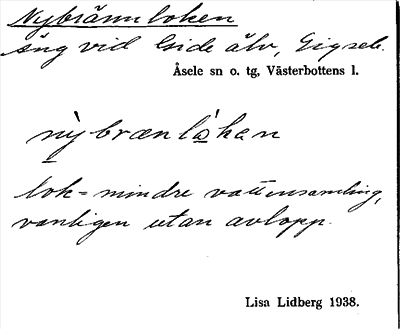 Nybrännloken
äng vid Gide älv, Gigsele.
Åsele sn o. tg, Västerbottens l.
nỳbrænlåkan
lok = mindre vattensamling,
vanligen utan avlopp.
Lisa Lidberg 1938.